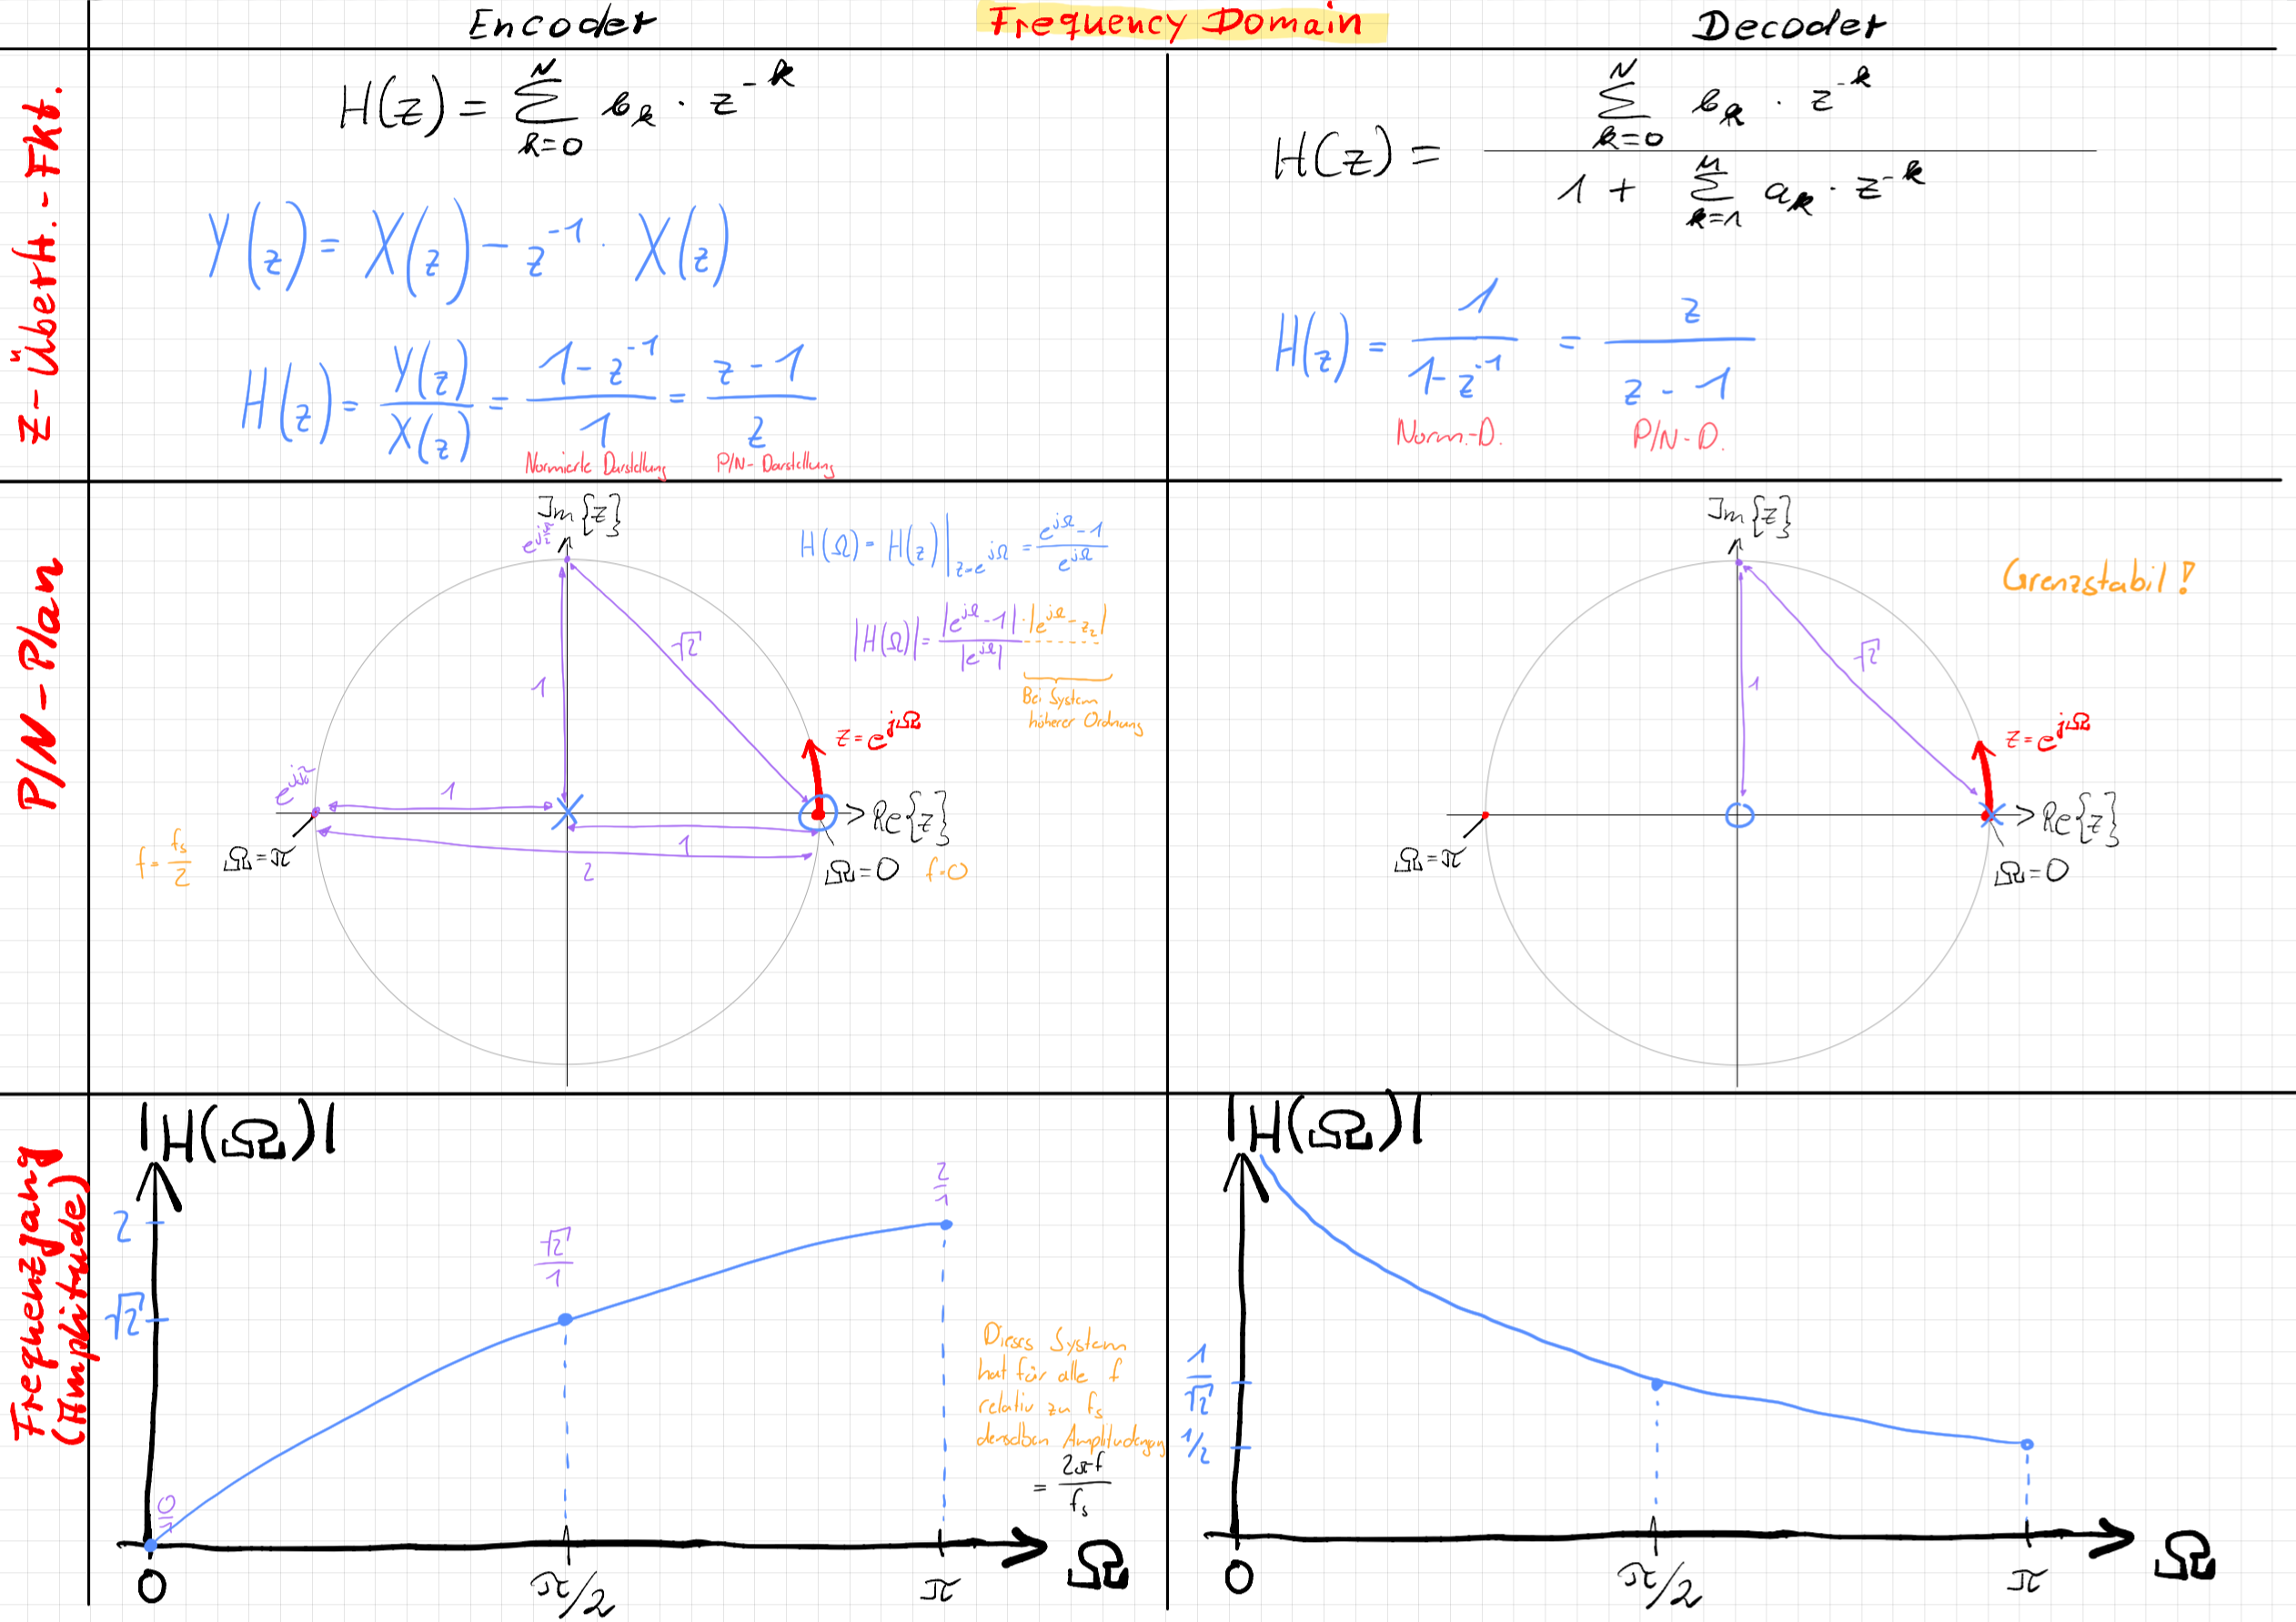 Encoder
Frequency Domain
Decoder
z-Übertr.-Fkt.
H(z) = ∑_{k=0}^{N} b_k · z^{-k}
Y(z) = X(z) - z^{-1} · X(z)
H(z) = Y(z)/X(z) = (1-z^{-1})/1 = (z-1)/z
Normierte Darstellung
P/N-Darstellung
H(z) = (∑_{k=0}^{N} b_k · z^{-k}) / (1 + ∑_{k=1}^{M} a_k · z^{-k})
H(z) = 1/(1-z^{-1}) = z/(z-1)
Norm.-D.
P/N-D.
P/N-Plan
Im{z}
e^{jπ/2}
H(Ω) = H(z)|_{z=e^{jΩ}} = (e^{jΩ}-1)/e^{jΩ}
|H(Ω)| = |e^{jΩ}-1|/|e^{jΩ}| · |e^{jΩ}-z_2|
Bei System
höherer Ordnung
√2
1
z=e^{jΩ}
e^{jπ}
1
Re{z}
1
2
f=f_s/2
Ω=π
Ω=0
f=0
Im{z}
Grenzstabil!
√2
1
z=e^{jΩ}
Re{z}
Ω=π
Ω=0
Frequenzgang
(Amplitude)
|H(Ω)|
2
√2
0/1
√2/1
2/1
0
π/2
π
Ω
Dieses System
hat für alle f
relativ zu f_s
denselben Amplitudengang
= 2πf/f_s
|H(Ω)|
1/√2
1/2
0
π/2
π
Ω